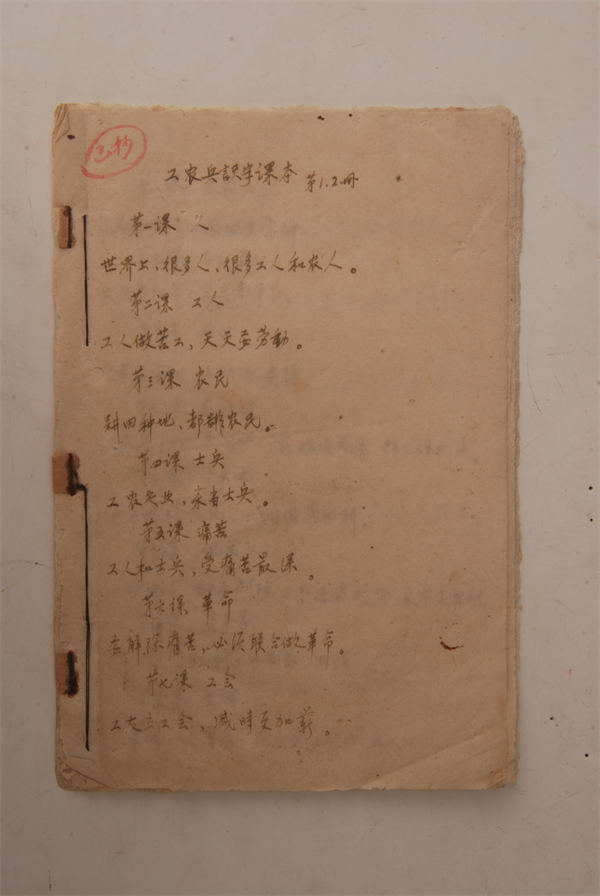 已抄
工农兵識字课本 第1.2冊
第一课 人
世界上、很多人、很多工人和农人。
第二课 工人
工人做苦工、天天要劳動。
第三课 农民
耕田种地、都靠农民。
第四课 士兵
工农失业、来当士兵。
第五课 痛苦
工人和士兵、受痛苦最深。
第六课 革命
要解除痛苦、必须联合做革命。
第七课 工会
工友立工会、减時更加薪。